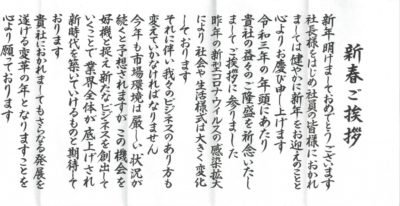 新春ご挨拶
新年明けましておめでとうございます
社長様をはじめ社員の皆様におかれ
ましては健やかに新年をお迎えのことと
心よりお慶び申し上げます
令和三年の年頭にあたり
貴社の益々のご隆盛を祈念いたし
ましてご挨拶に参りました
昨年の新型コロナウイルスの感染拡大
により社会や生活様式は大きく変化
しております
それに伴い我々のビジネスのあり方も
変えていかなければなりません
今年も市場環境は厳しい状況が
続くと予想されますが この機会を
好機と捉え新たなビジネスを創出して
いくことで 業界全体が底上げされ
新時代を築いていけるものと期待して
おります
貴社におかれましてもさらなる発展を
遂げる変革の年となりますことを
心より願っております